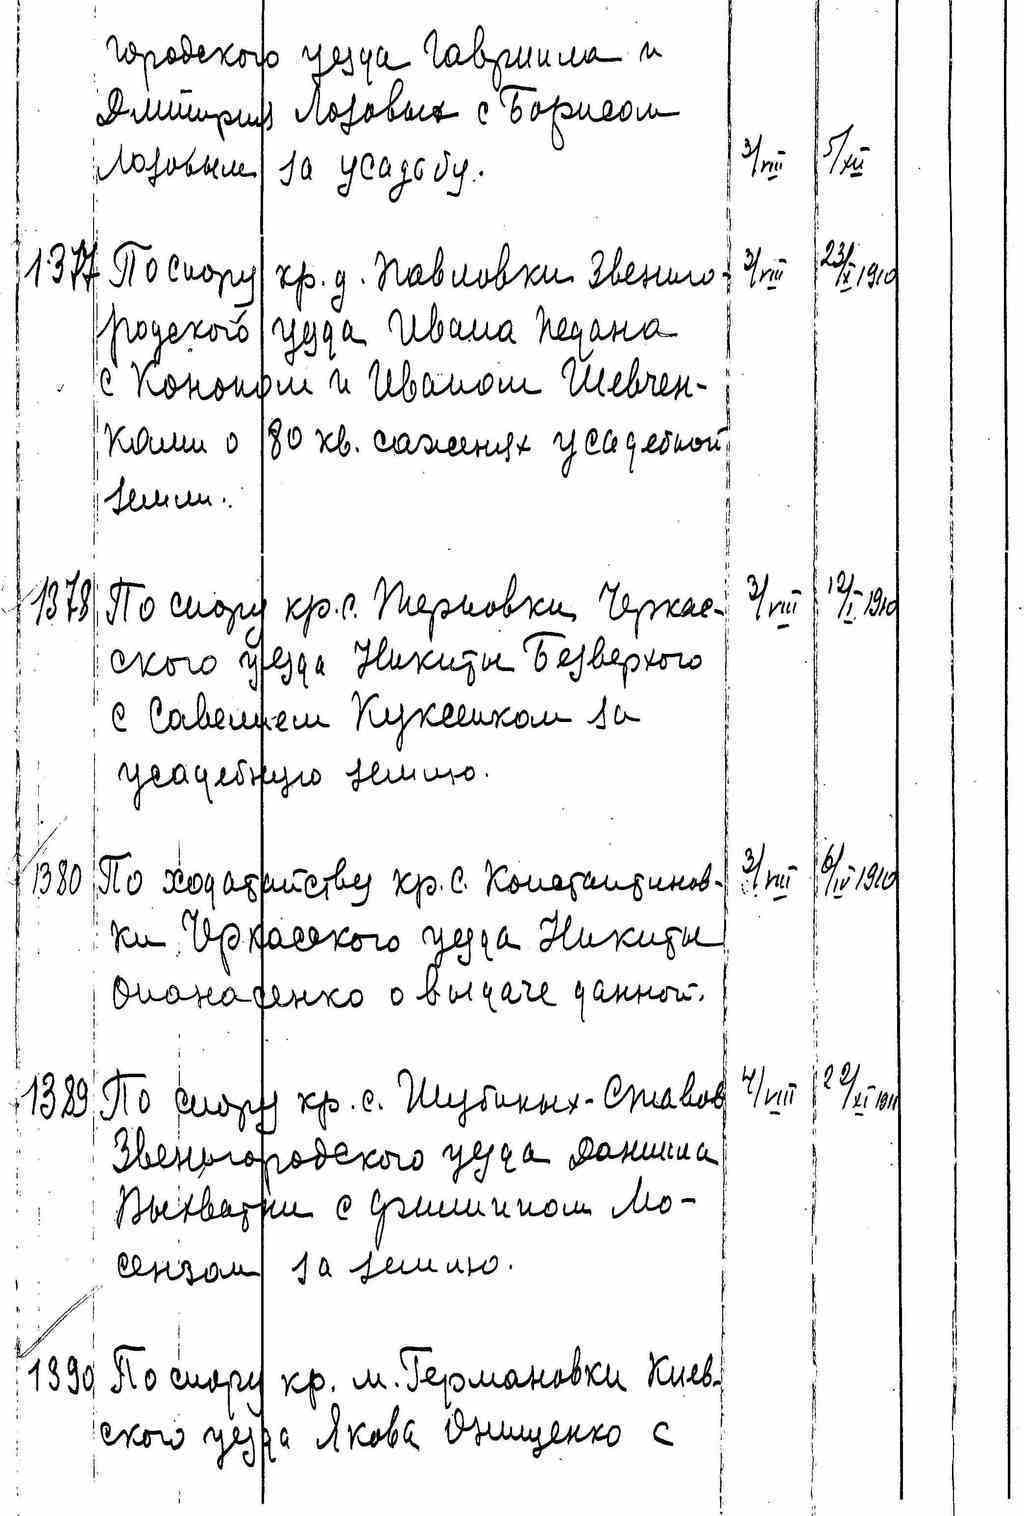 городского уезда Гавриила и
Дмитрия Лозовых с Борисом
Лозовым за усадьбу. 3/VIII 5/XII
1377 По спору кр. д. Павловки Звениго- 3/VIII 23/IX 1910
родского уезда Ивана Педана
с Кононом и Иваном Шевчен-
ками о 80 кв. саженях усадебной
земли.
1378 По спору кр. с. Терновки, Черкас- 3/VIII 12/I 1910
ского уезда Никиты Безверхого
с Савелием Куксенком за
усадебную землю.
1380 По ходатайству кр. с. Константинов- 3/VIII 6/IV 1910
ки Черкасского уезда Никиты
Опанасенко о выдаче данной.
1389 По спору кр. с. Шубиных-Ставов 4/VIII 22/XI 1911
Звенигородского уезда Даниила
Выхватни с Филиппом Мо-
сензом за землю.
1390 По спору кр. м. Германовки Киев-
ского уезда Якова Онищенко с